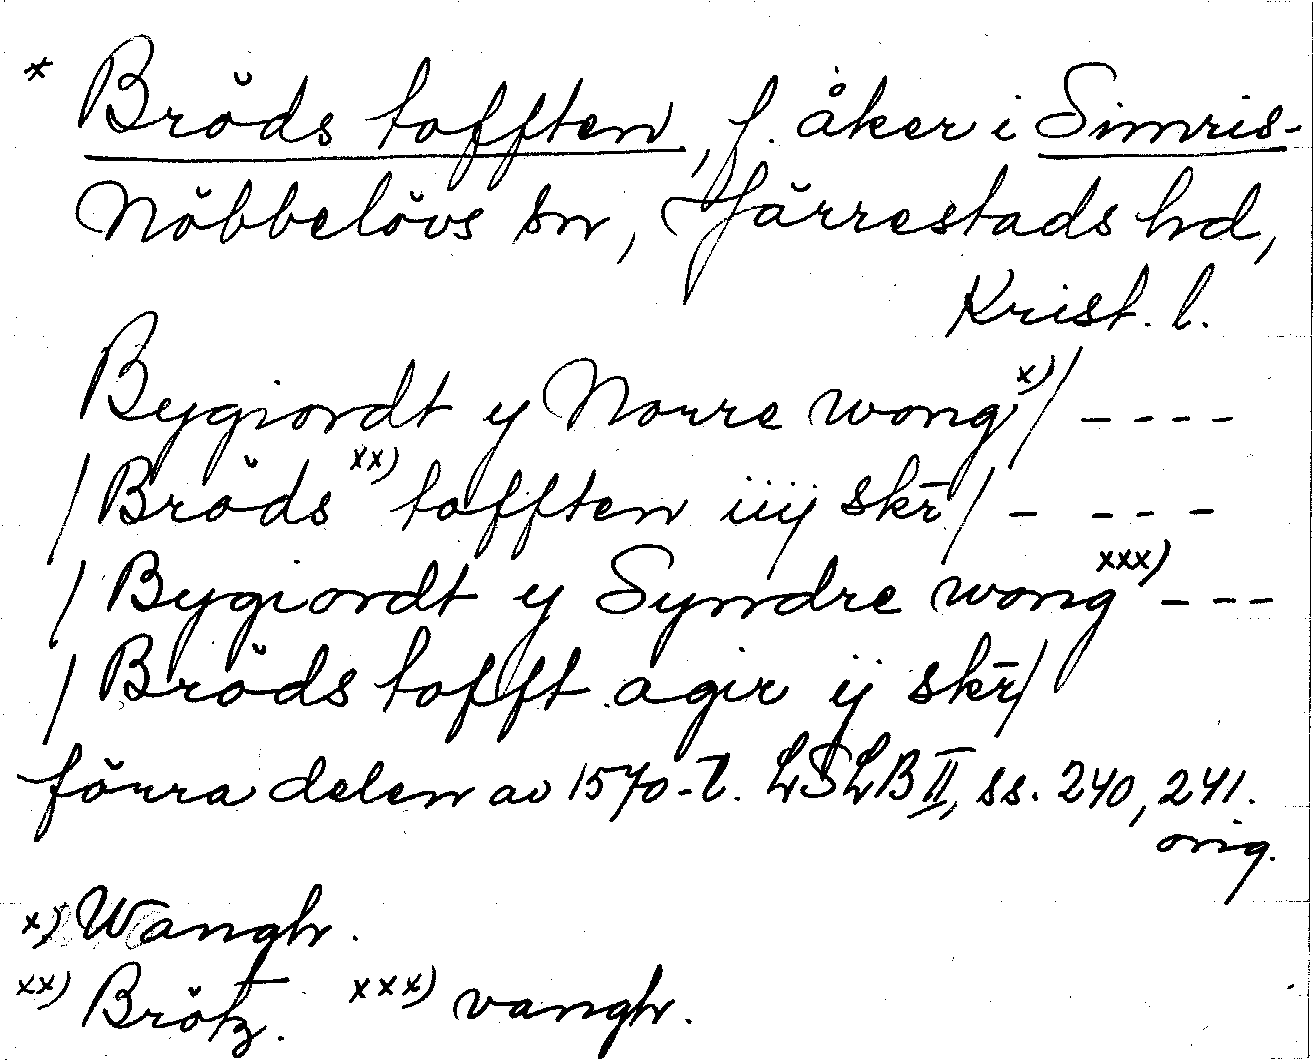 * Bröds tofften, f. åker i Simris-
Nöbbelövs sn, Järrestads hd,
Krist. l.
Bygiordt y Norre wong x) / - - - -
/ Bröds xx) tofften iiij skr̄ / - - - -
/ Bygiordt y Syndre wong xxx) - - -
/ Bröds tofft agir ij skr̄ /
förra delen av 1570-t. LSLB II, ss. 240, 241.
orig.
x) Wangh.
xx) Brötz. xxx) vangh.